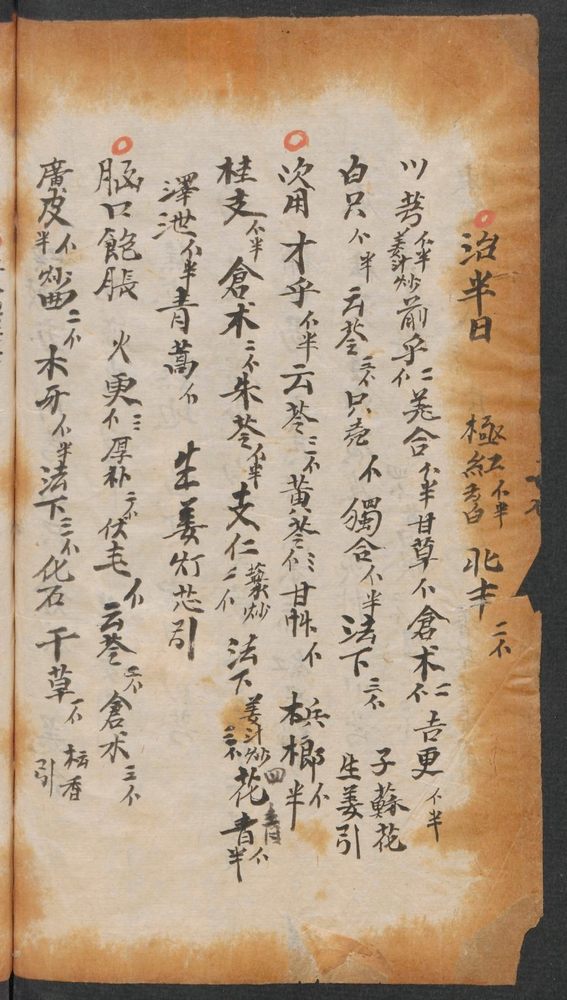 治半日 極紅不半 北丰二不
川芎不半姜汁炒前乎二不羌合不半甘草不倉术二不吉更不半
白只不半云苓三不只壳不獨合不半法下二不 子蘇花 生姜引
次用才乎不半云苓三不黄芩二不甘草不梹榔不半
桂支不半倉术二不朱苓不半支仁二不 法下姜汁炒二不花青不半
澤泄不半青蒿不 生姜灯芯引
胸口飽脹 火更三不厚朴二不伏毛不云苓二不倉术三不
廣皮不半炒曲二不木牙不半法下三不化石 干草不 香引